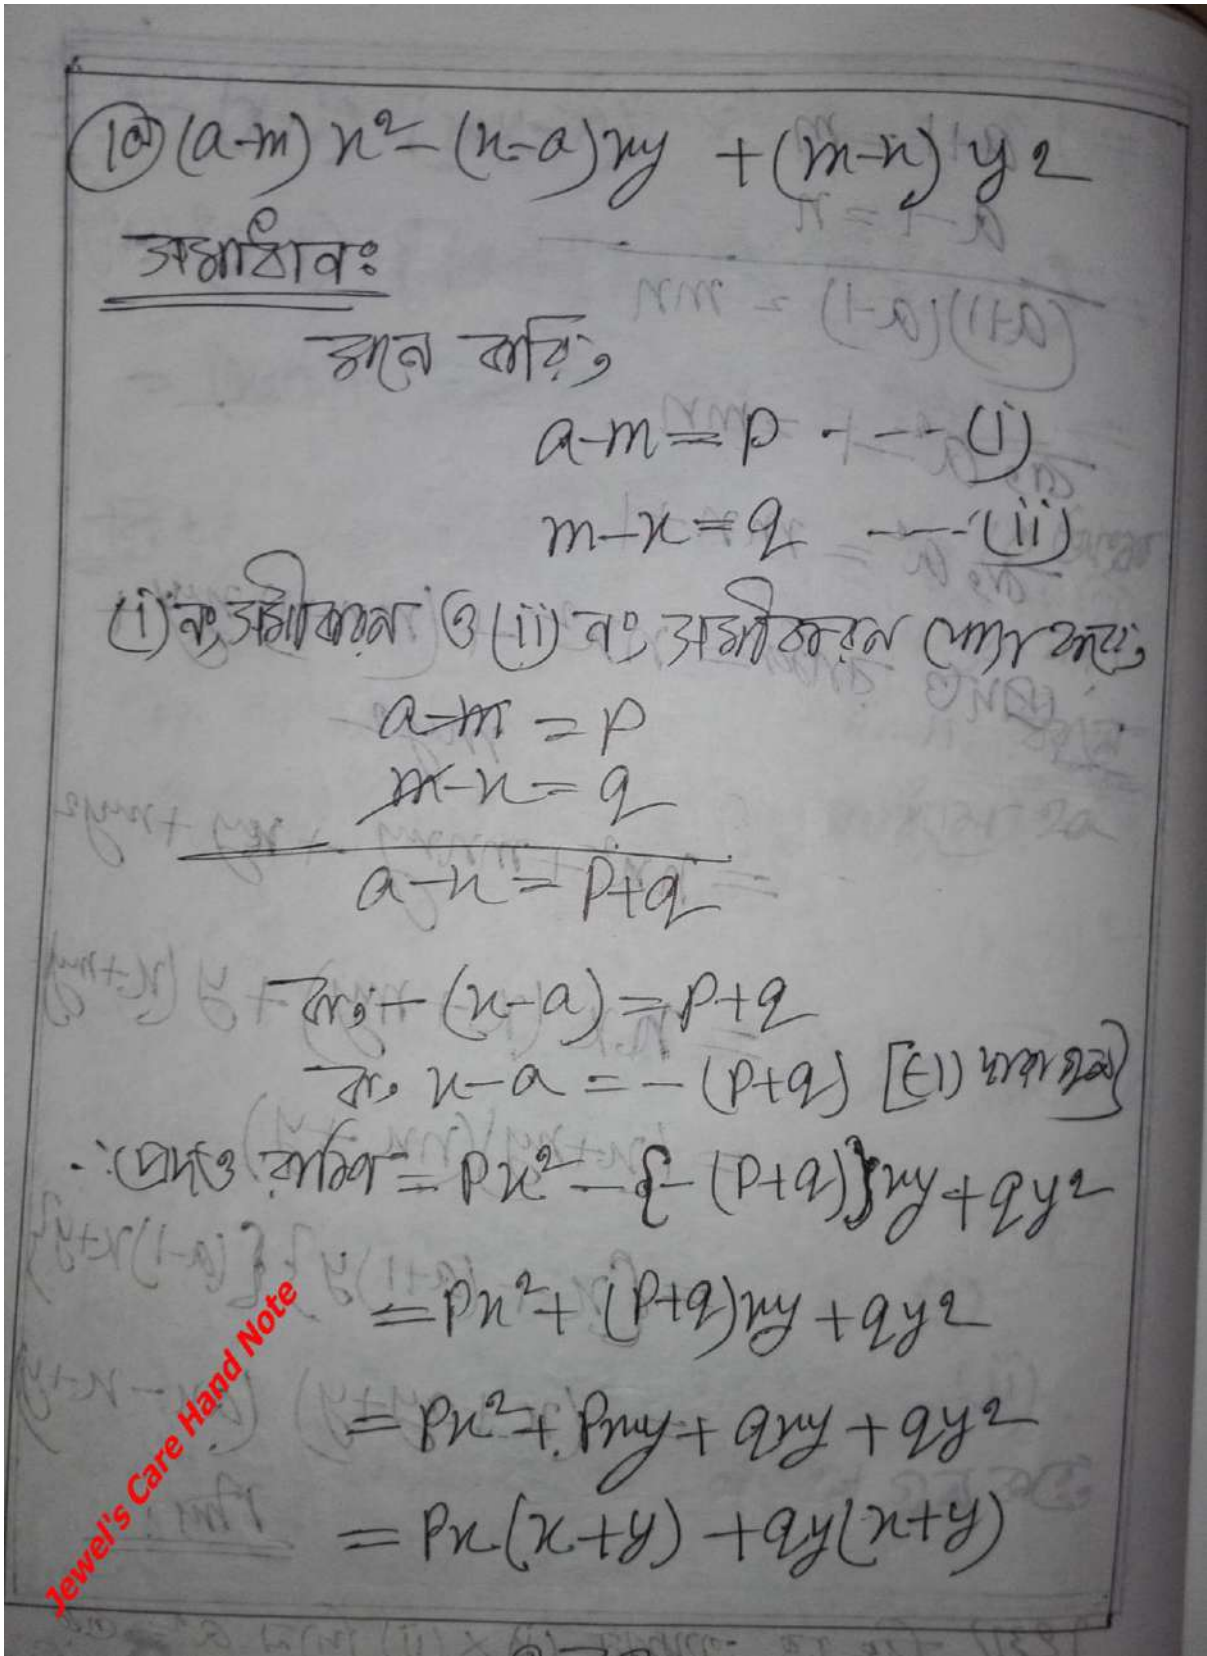 10) (a-m) x² - (n-a)xy + (m-n) y²
সমাধানঃ
মনে করি,
a-m = p ---- (i)
m-n = q ---- (ii)
(i) নং সমীকরন ও (ii) নং সমীকরন যোগ করে,
a-m = p
m-n = q
a-n = p+q
বা, - (n-a) = p+q
বা, n-a = - (p+q) [(-1) দ্বারা গুন]
∴ প্রদত্ত রাশি = px² - {- (p+q)}xy + qy²
= px² + (p+q)xy + qy²
= px² + pxy + qxy + qy²
= px(x+y) + qy(x+y)
Jewel's Care Hand Note